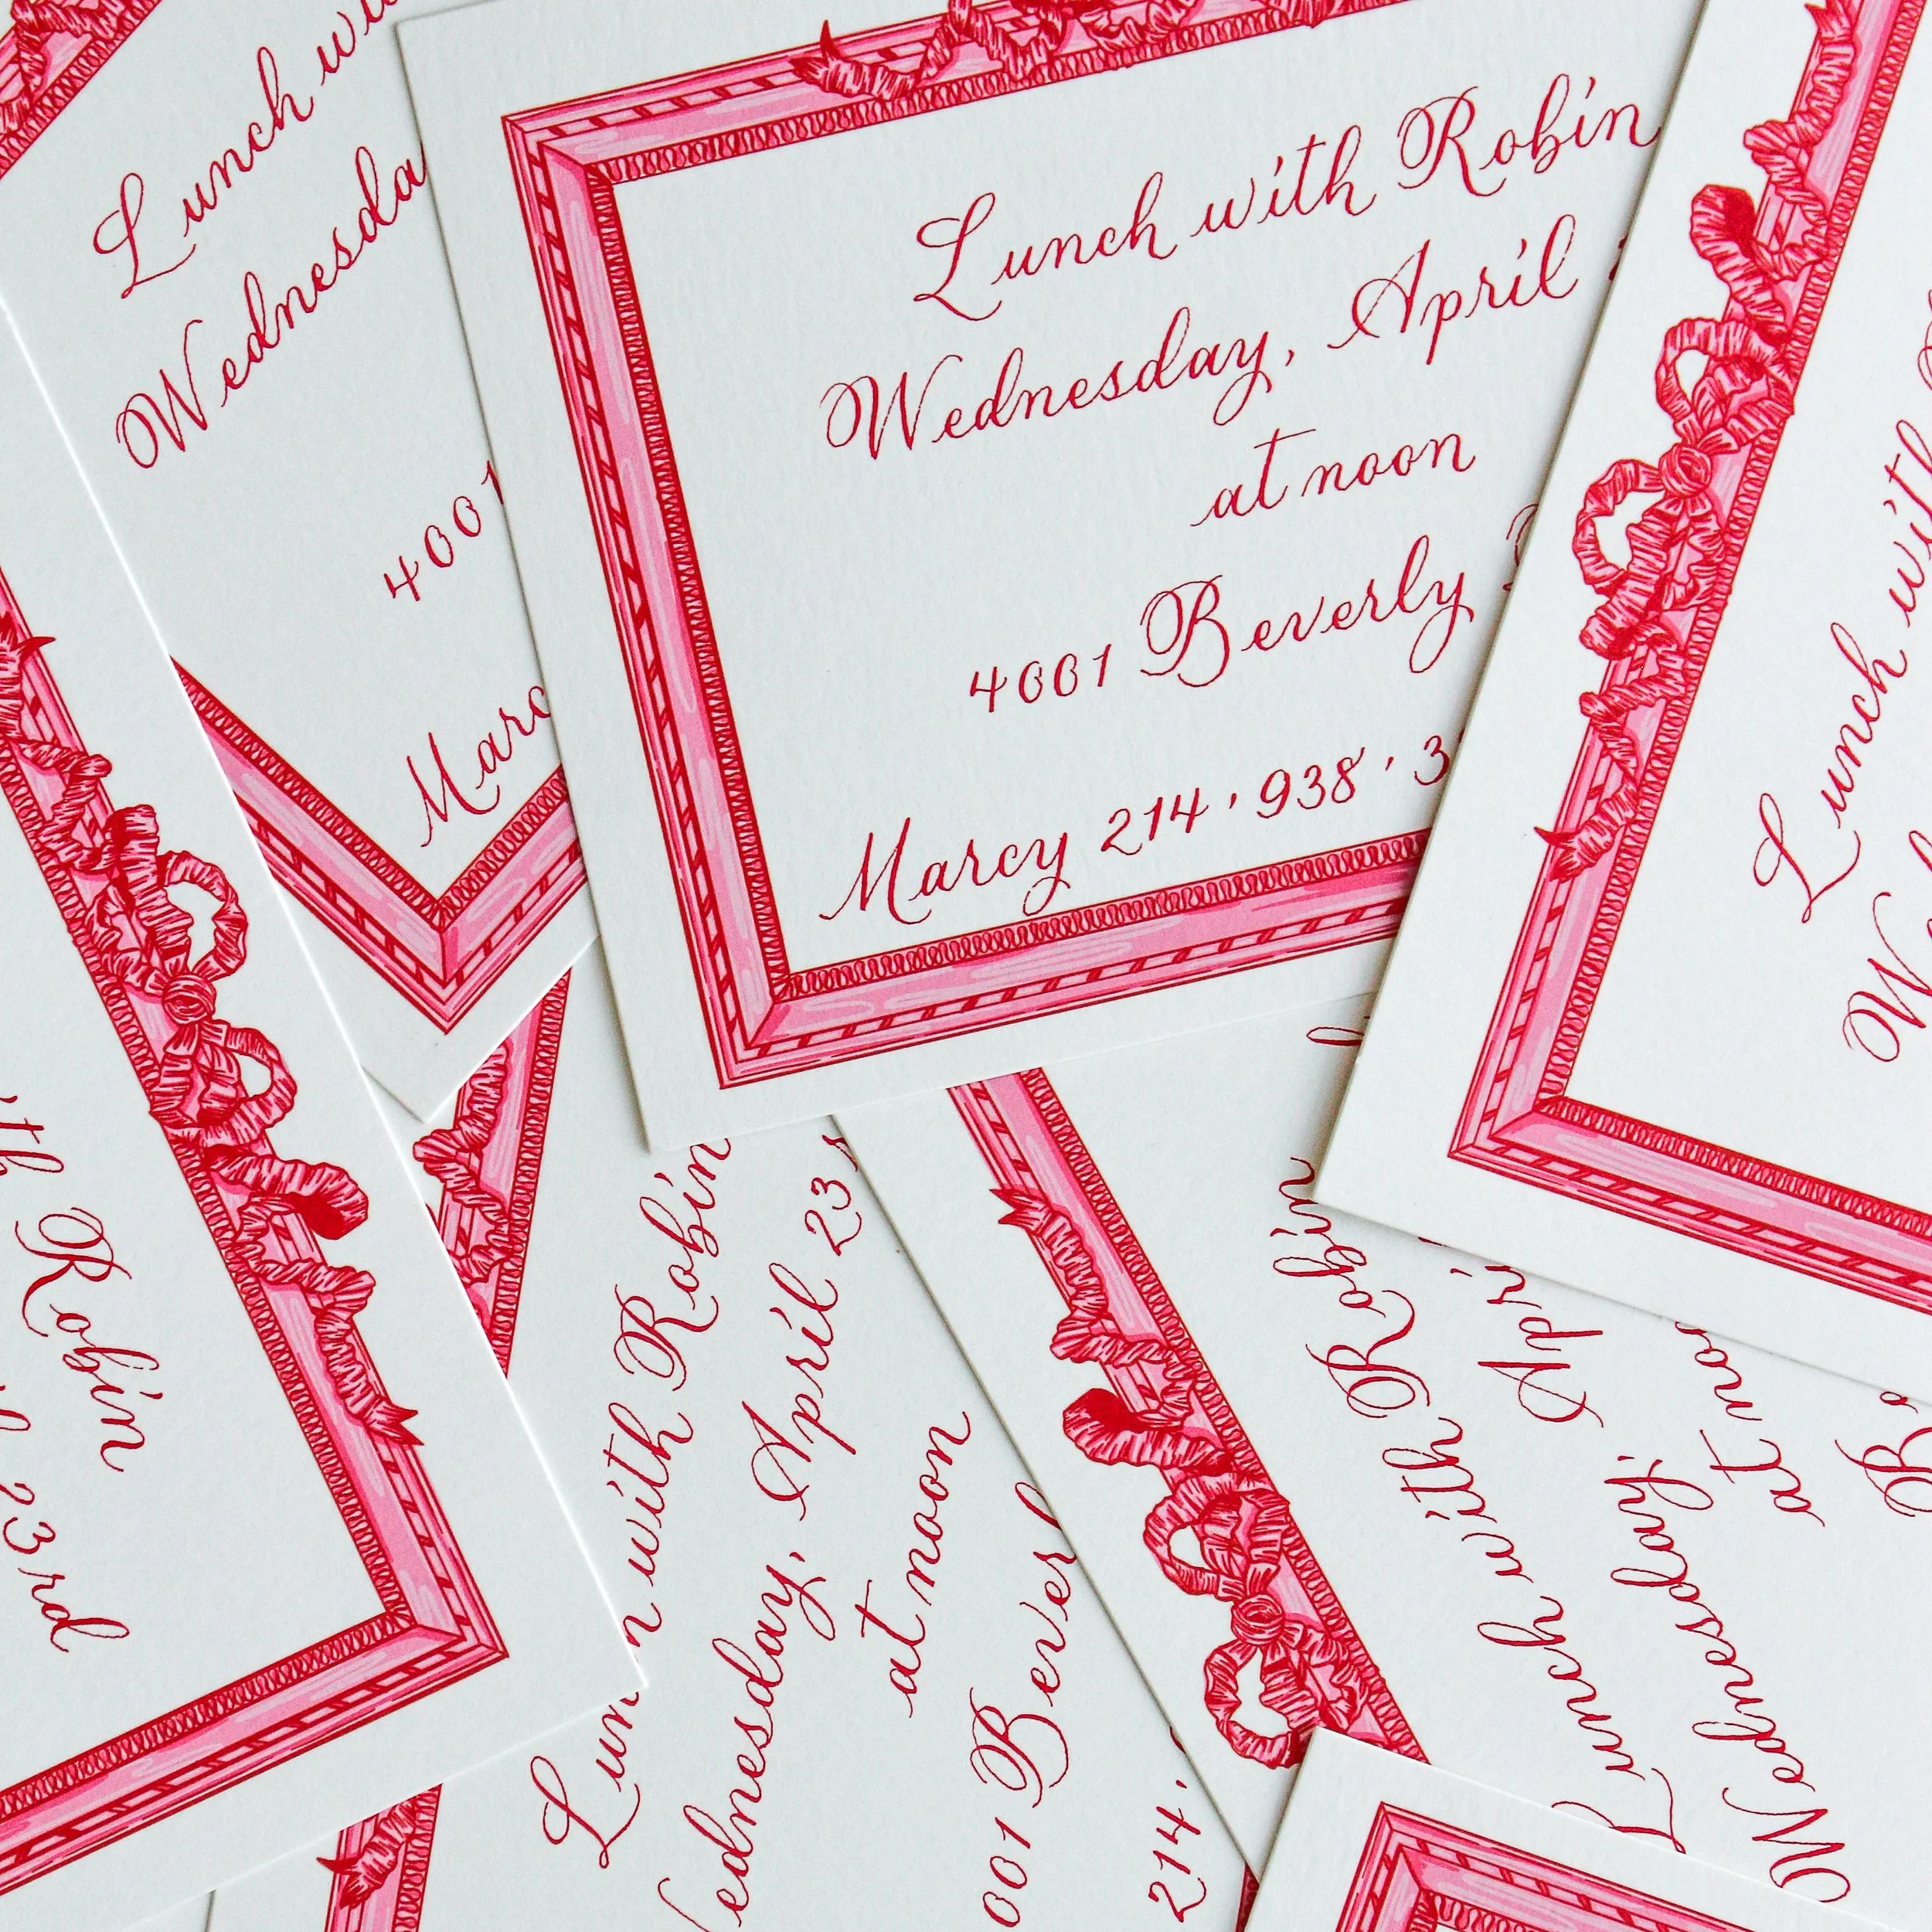 Lunch
Wednesda
4001
Marc
Lunch with Robin
Wednesday, April
at noon
4001 Beverly
Marcy 214·938·3
Lunch with
with Robin
23rd
Lunch with Robin
Wednesday, April 23
at noon
001 Bever
214·
Lunch with Robin
Wednesday, Apri
at noo